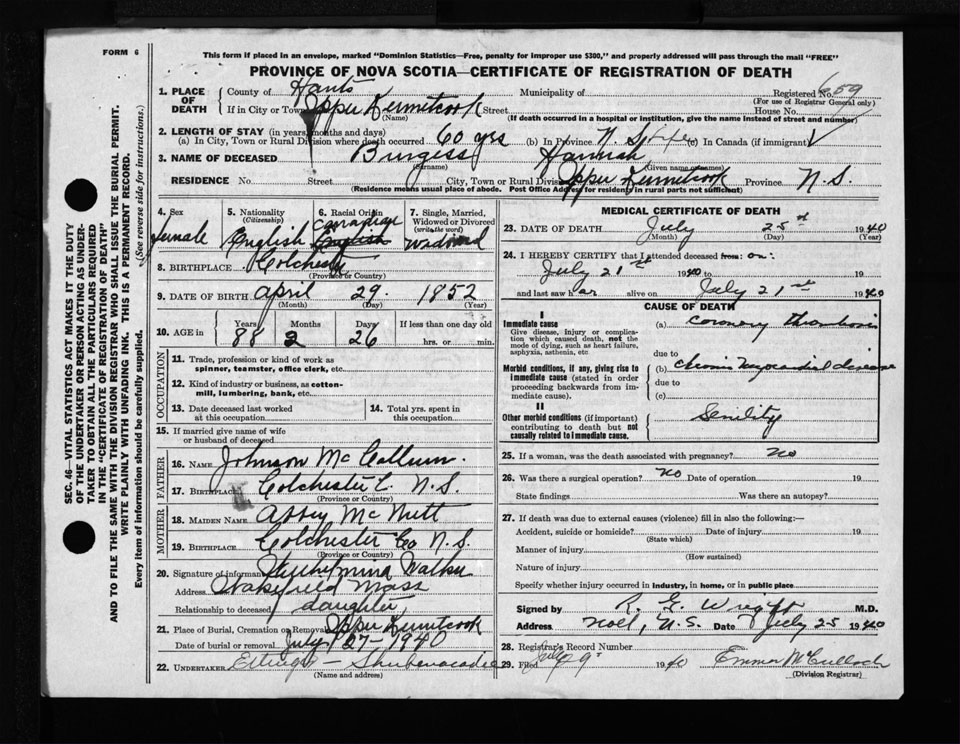 FORM 6
This form if placed in an envelope, marked "Dominion Statistics—Free, penalty for improper use $300," and properly addressed will pass through the mail "FREE"
PROVINCE OF NOVA SCOTIA—CERTIFICATE OF REGISTRATION OF DEATH
1. PLACE OF DEATH
County of Hants Municipality of Registered No. 659
(For use of Registrar General only)
If in City or Town Upper Kennetcook Street House No.
(Name) (If death occurred in a hospital or institution, give the name instead of street and number)
2. LENGTH OF STAY (in years, months and days)
(a) In City, Town or Rural Division where death occurred 60 yrs (b) In Province N S Life (c) In Canada (if immigrant)
3. NAME OF DECEASED Burgess Hannah
(Surname) (Given name or names)
RESIDENCE No. Street City, Town or Rural Division Upper Kennetcook Province N. S.
(Residence means usual place of abode. Post Office Address for residents in rural parts not sufficient)
4. Sex female
5. Nationality (Citizenship) English
6. Racial Origin Canadian English
7. Single, Married, Widowed or Divorced (write the word) widowed
8. BIRTHPLACE Colchester
(Province or Country)
9. DATE OF BIRTH April 29. 1852
(Month) (Day) (Year)
10. AGE in Years Months Days If less than one day old
88 2 26 hrs. or min.
OCCUPATION
11. Trade, profession or kind of work as spinner, teamster, office clerk, etc.
12. Kind of industry or business, as cotton-mill, lumbering, bank, etc.
13. Date deceased last worked at this occupation
14. Total yrs. spent in this occupation
15. If married give name of wife or husband of deceased
FATHER
16. NAME Johnson McCallum.
17. BIRTHPLACE Colchester C. N.S.
(Province or Country)
MOTHER
18. MAIDEN NAME Abbey McNutt
19. BIRTHPLACE Colchester Co N.S.
(Province or Country)
20. Signature of informant Walker
Address Wakefield Mass
Relationship to deceased daughter
21. Place of Burial, Cremation or Removal Upper Kennetcook
Date of burial or removal July 27— 1940
22. UNDERTAKER Ettinger — Shubenacadie
(Name and address)
MEDICAL CERTIFICATE OF DEATH
23. DATE OF DEATH July 25th 1940
(Month) (Day) (Year)
24. I HEREBY CERTIFY that I attended deceased from: on:
July 21st 1940 to 19
and last saw her alive on July 21st 1940
CAUSE OF DEATH
I
Immediate cause
Give disease, injury or complication which caused death, not the mode of dying, such as heart failure, asphyxia, asthenia, etc
(a) coronary thrombosis
due to
Morbid conditions, if any, giving rise to immediate cause (stated in order proceeding backwards from immediate cause).
(b) chronic myocardial disease
due to
(c)
II
Other morbid conditions (if important) contributing to death but not causally related to immediate cause.
Senility
25. If a woman, was the death associated with pregnancy? no
26. Was there a surgical operation? no Date of operation 19
State findings Was there an autopsy?
27. If death was due to external causes (violence) fill in also the following:—
Accident, suicide or homicide? Date of injury 19
(State which)
Manner of injury
(How sustained)
Nature of injury
Specify whether injury occurred in industry, in home, or in public place
Signed by R. G. Wright M.D.
Address Noel, N.S. Date July 25 1940
28. Registrar's Record Number
29. Filed July 1940 Emma McCulloch
(Division Registrar)
SEC. 46—VITAL STATISTICS ACT MAKES IT THE DUTY
OF THE UNDERTAKER OR PERSON ACTING AS UNDER-
TAKER TO OBTAIN ALL THE PARTICULARS REQUIRED
IN THE "CERTIFICATE OF REGISTRATION OF DEATH"
AND TO FILE THE SAME WITH THE DIVISION REGISTRAR WHO SHALL ISSUE THE BURIAL PERMIT.
WRITE PLAINLY WITH UNFADING INK. THIS IS A PERMANENT RECORD.
Every item of information should be carefully supplied. (See reverse side for instructions.)